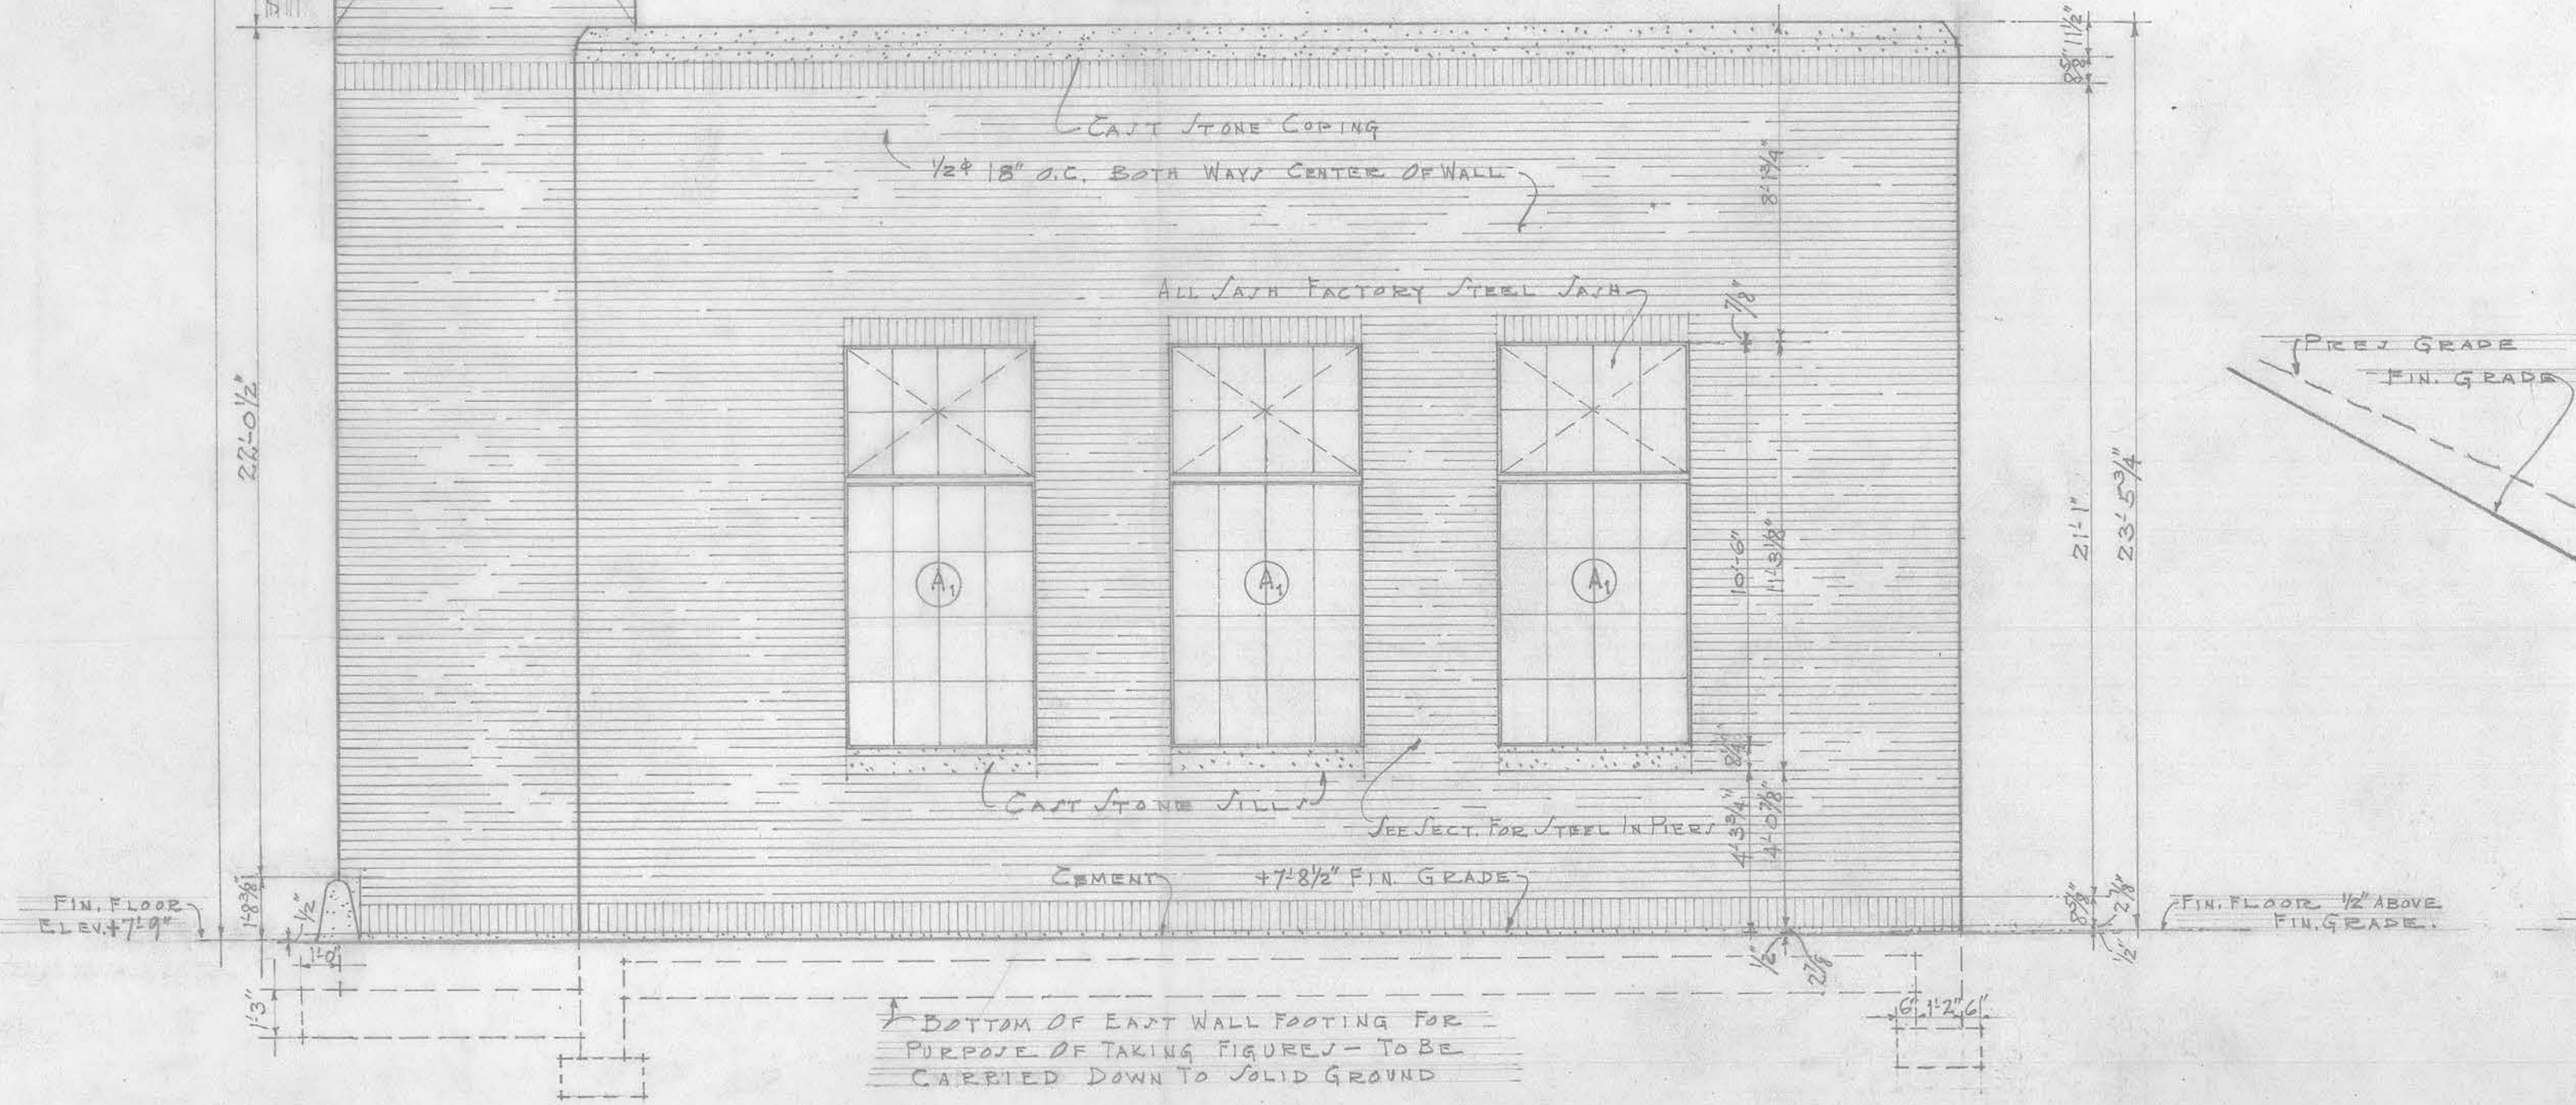 11 1/2"
8 5/8"
CAST STONE COPING
1/2ϕ 18" O.C. BOTH WAYS CENTER OF WALL
8'-1 3/4"
ALL SASH FACTORY STEEL SASH
7/8"
PRES GRADE
FIN. GRADE
22'-0 1/2"
21'-1"
23'-5 3/4"
10'-6"
11'-3 1/8"
A1
A1
A1
8 1/4"
CAST STONE SILLS
SEE SECT. FOR STEEL IN PIERS
4'-3 3/4"
4'-0 7/8"
CEMENT
+7'-8 1/2" FIN. GRADE
1'-8 3/8"
1/2"
FIN. FLOOR
ELEV. +7'-9"
8 5/8"
2 7/8"
FIN. FLOOR 1/2" ABOVE
FIN. GRADE.
1'-0"
1/2"
2 7/8"
1/2"
1'-3"
6" 1'-2" 6"
BOTTOM OF EAST WALL FOOTING FOR
PURPOSE OF TAKING FIGURES - TO BE
CARRIED DOWN TO SOLID GROUND